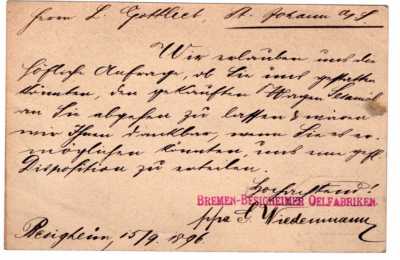 Herrn L. Gottlieb, St. Johann a/S
Wir erlauben uns die
höfliche Anfrage, ob Sie uns gestatten
könnten, den gekauften Wagen
an Sie abgehen zu lassen & wären
wir Ihnen dankbar, wenn Sie es er-
möglichen könnten, uns eine gefl.
Disposition zu erteilen.
Hochachtend!
BREMEN-BESIGHEIMER OELFABRIKEN.
ppa G. Wiedenmann
Besigheim, 15/9. 1896.